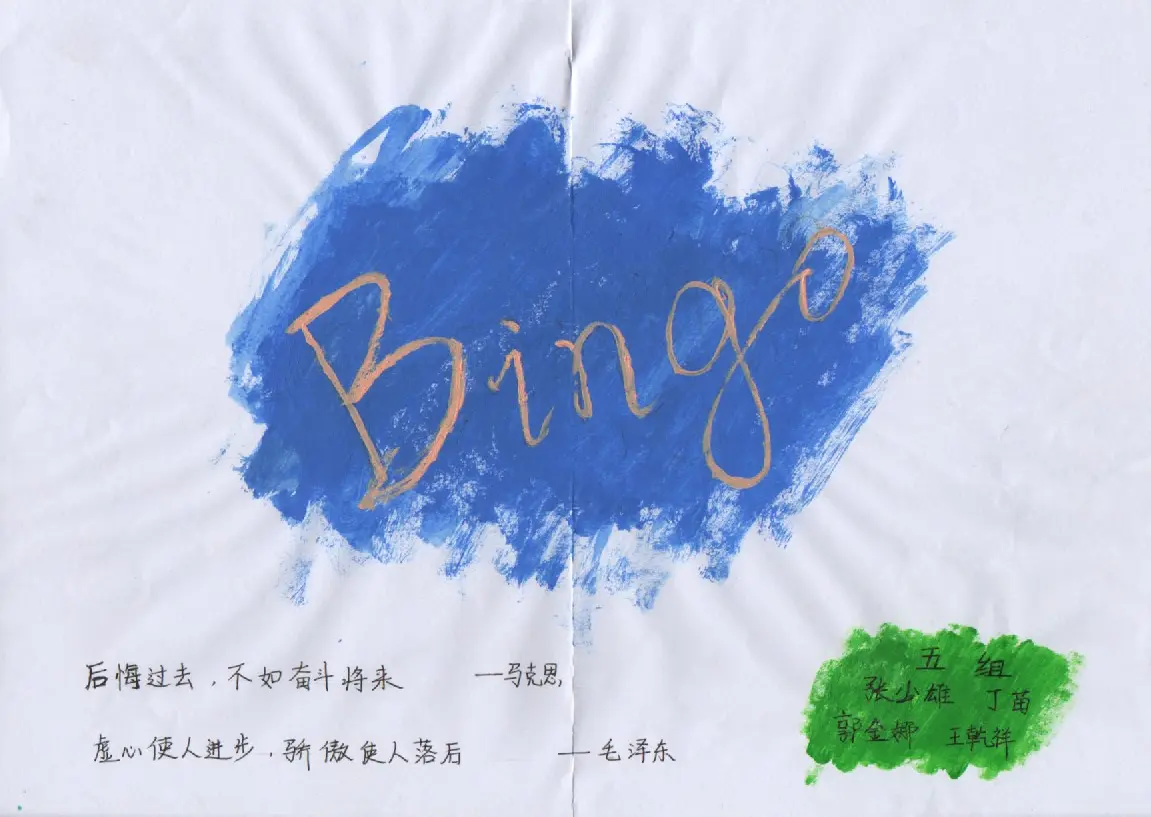 Bingo
后悔过去,不如奋斗将来 —马克思
虚心使人进步,骄傲使人落后 —毛泽东
五组
张少雄 丁苗
郭金娜 王乾祥